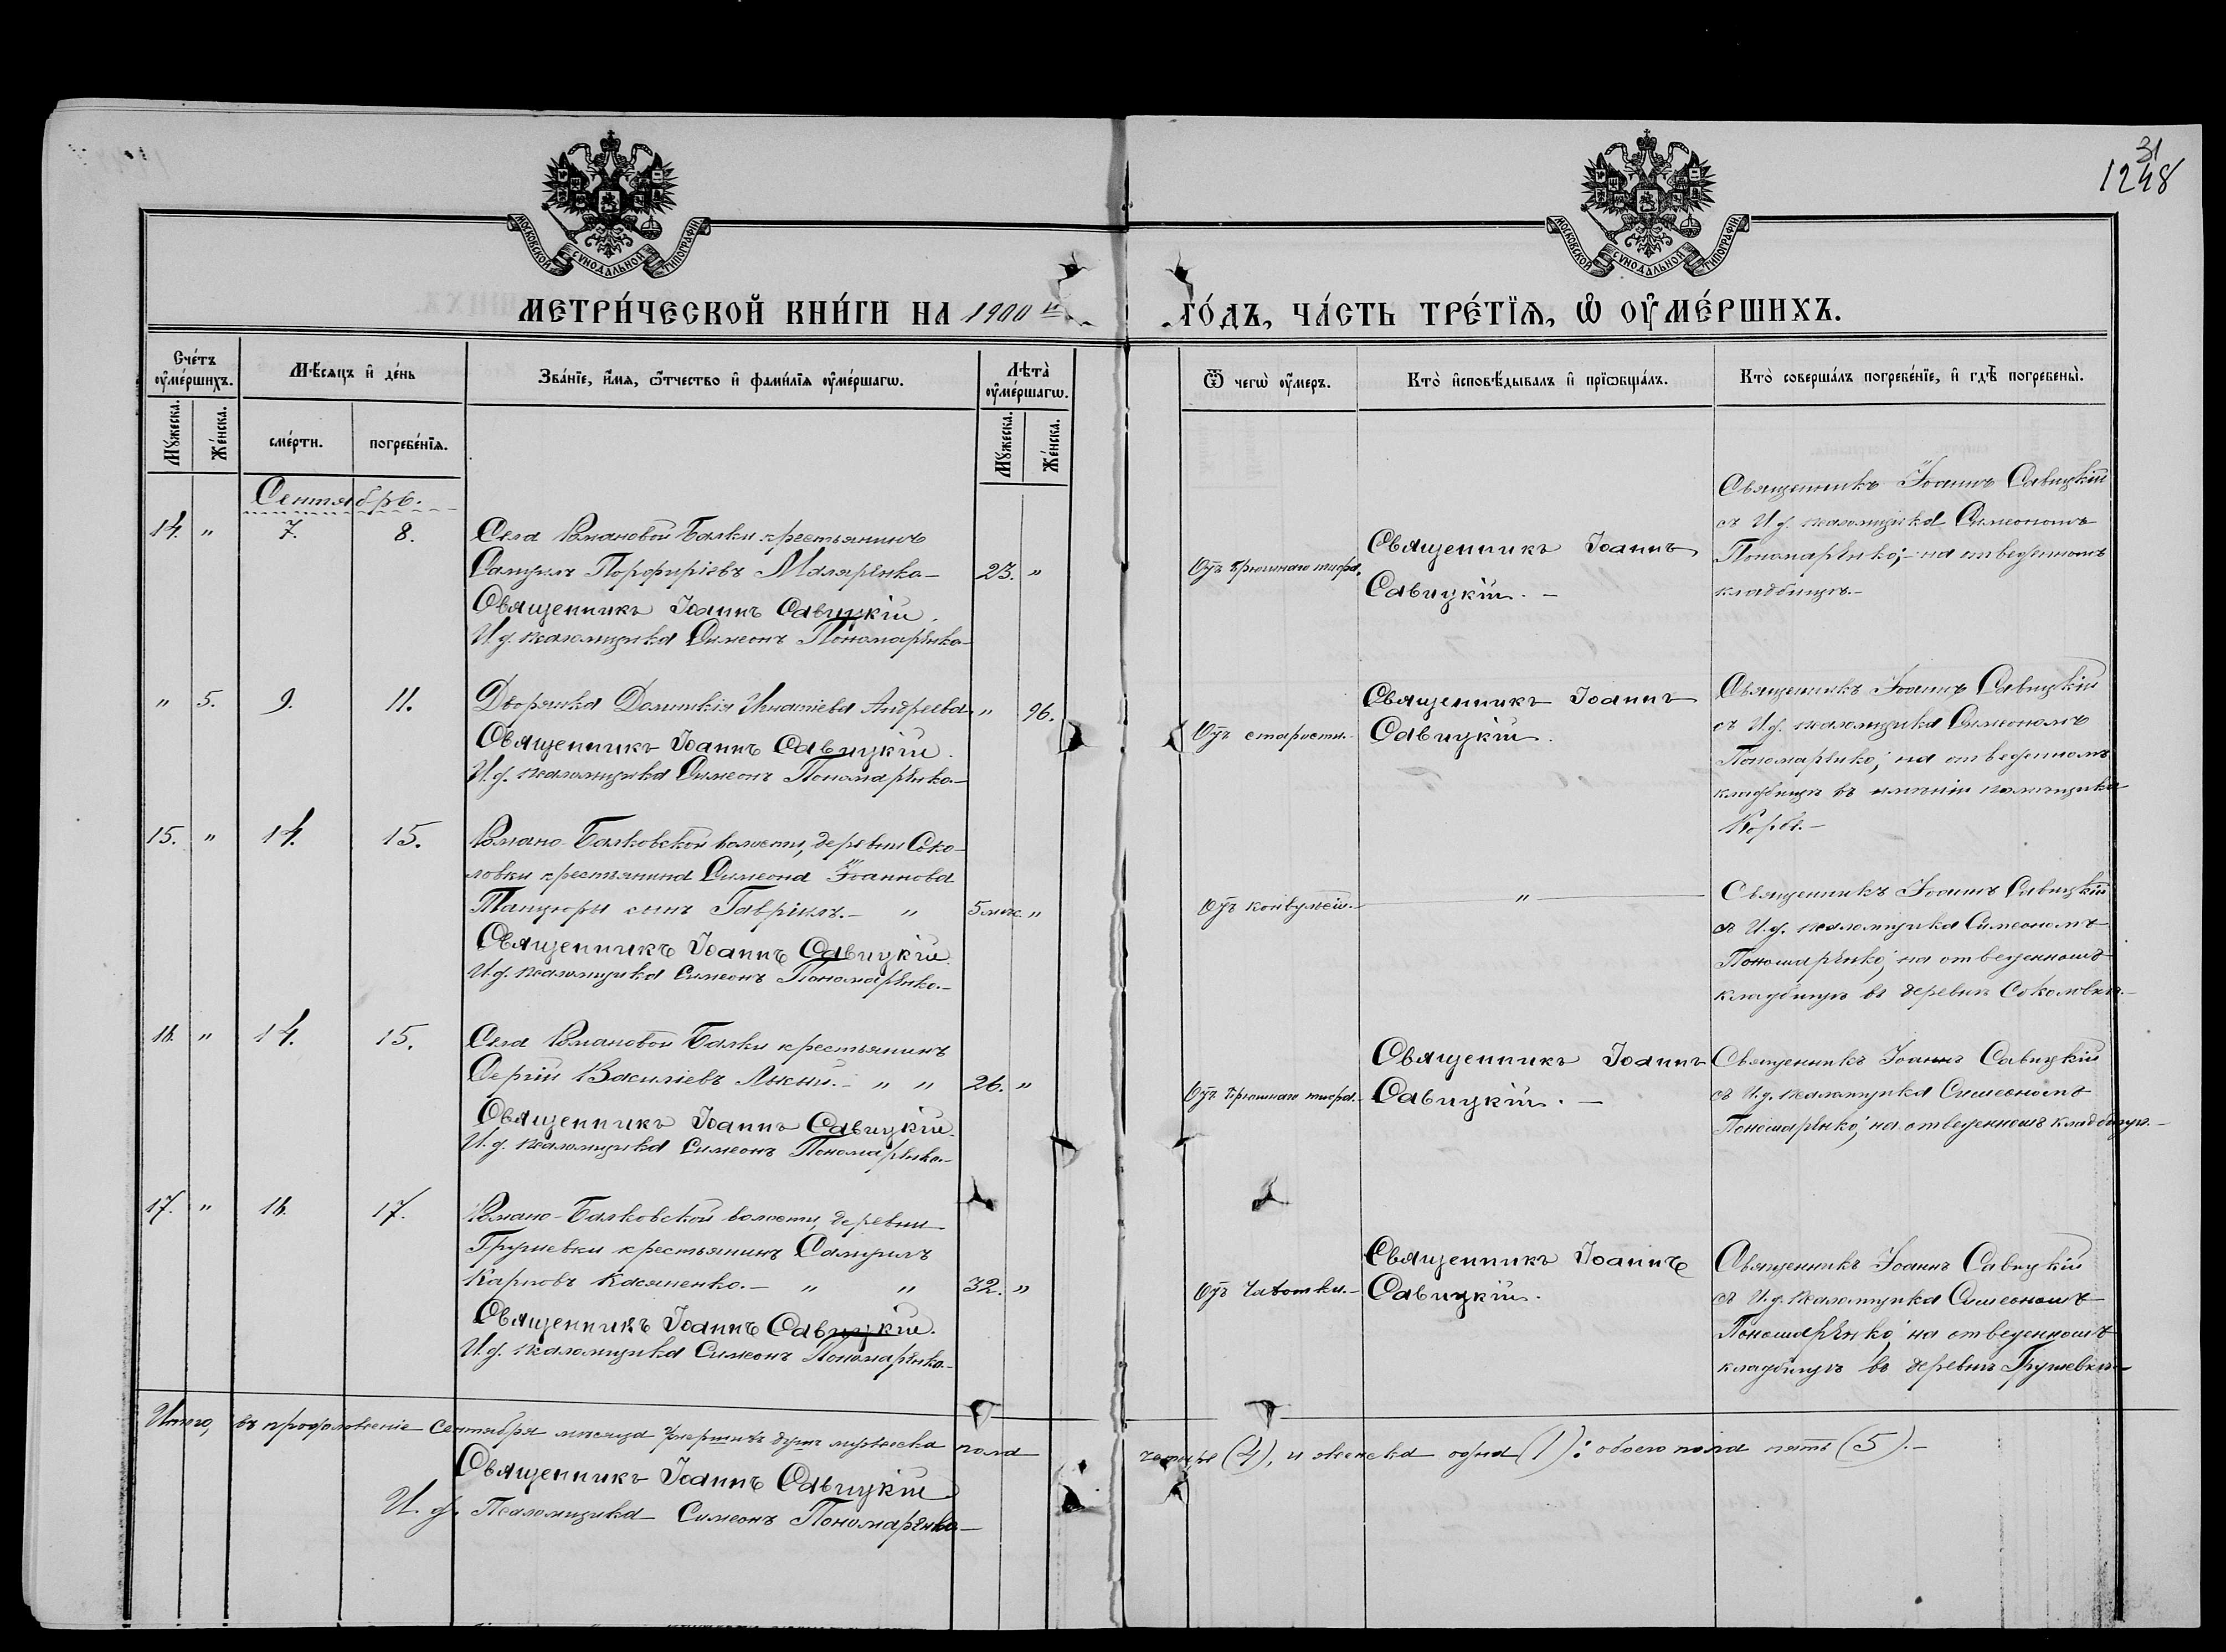 31
1248
МОСКОВСКОЙ СѴНОДАЛЬНОЙ ТИПОГРАФІИ
МОСКОВСКОЙ СѴНОДАЛЬНОЙ ТИПОГРАФІИ
МЕТРИ́ЧЕСКОЙ КНИ́ГИ НА 1900 й
ГО́ДЪ, ЧА́СТЬ ТРЕ́ТЇѦ, Ѡ҆ ОУ҆МЕ́РШИХЪ.
Сче́тъ оу҆ме́ршихъ.
Мꙋ́жеска.
Же́нска.
Мѣ́сяцъ и҆ де́нь
сме́рти.
погребе́нїѧ.
Зва́нїе, и҆́мѧ, ѻ҆́тчество и҆ фамі́лїѧ оу҆ме́ршагѡ.
Лѣ́та оу҆ме́ршагѡ.
Мꙋ́жеска.
Же́нска.
Ѿ чегѡ̀ оу҆́меръ.
Кто̀ и҆сповѣ́дывалъ и҆ прїѡбща́лъ.
Кто̀ соверша́лъ погребе́нїе, и҆ гдѣ̀ погребены̀.
Сентябрь.
14. " 7. 8. Села Романовой Балки крестьянинъ
Самуилъ Порфиріевъ Маляренко 23. "
Священникъ Іоаннъ Савицкій.
И.д. псаломщика Симеонъ Пономаренко
Отъ брюшнаго тифа.
Священникъ Іоаннъ
Савицкій.
Священникъ Іоаннъ Савицкій
съ И.д. псаломщика Симеономъ
Пономаренко; на отведенномъ
кладбищѣ.
" 5. 9. 11. Дворянка Домникія Игнатіева Андреева " 96.
Священникъ Іоаннъ Савицкій.
И.д. псаломщика Симеонъ Пономаренко
Отъ старости.
Священникъ Іоаннъ
Савицкій.
Священникъ Іоаннъ Савицкій
съ И.д. псаломщика Симеономъ
Пономаренко; на отведенномъ
кладбищѣ въ имѣніи помѣщика
15. " 14. 15. Романо-Балковской волости, деревни Соко-
ловки крестьянина Симеона Іоаннова
сынъ Гавріилъ. " 5 мѣс. "
Священникъ Іоаннъ Савицкій.
И.д. псаломщика Симеонъ Пономаренко.
Отъ конвульсій.
"
Священникъ Іоаннъ Савицкій
съ И.д. псаломщика Симеономъ
Пономаренко; на отведенномъ
кладбищѣ въ деревнѣ Соколовкѣ.
16. " 14. 15. Села Романовой Балки крестьянинъ
Сергій Василіевъ " " 26. "
Священникъ Іоаннъ Савицкій.
И.д. псаломщика Симеонъ Пономаренко.
Отъ брюшнаго тифа.
Священникъ Іоаннъ
Савицкій.
Священникъ Іоаннъ Савицкій
съ И.д. псаломщика Симеономъ
Пономаренко; на отведенномъ кладбищѣ.
17. " 16. 17. Романо-Балковской волости, деревни
Грушевки крестьянинъ Самуилъ
Карповъ Касяненко. " " 32. "
Священникъ Іоаннъ Савицкій.
И.д. псаломщика Симеонъ Пономаренко
Отъ чахотки.
Священникъ Іоаннъ
Савицкій.
Священникъ Іоаннъ Савицкій
съ И.д. псаломщика Симеономъ
Пономаренко; на отведенномъ
кладбищѣ въ деревнѣ Грушевкѣ
Итого, въ продолженіе Сентября мѣсяца умершихъ душъ мужеска пола четыре (4), и женска одна (1): обоего пола пять (5).
Священникъ Іоаннъ Савицкій
И. д. Псаломщика Симеонъ Пономаренко